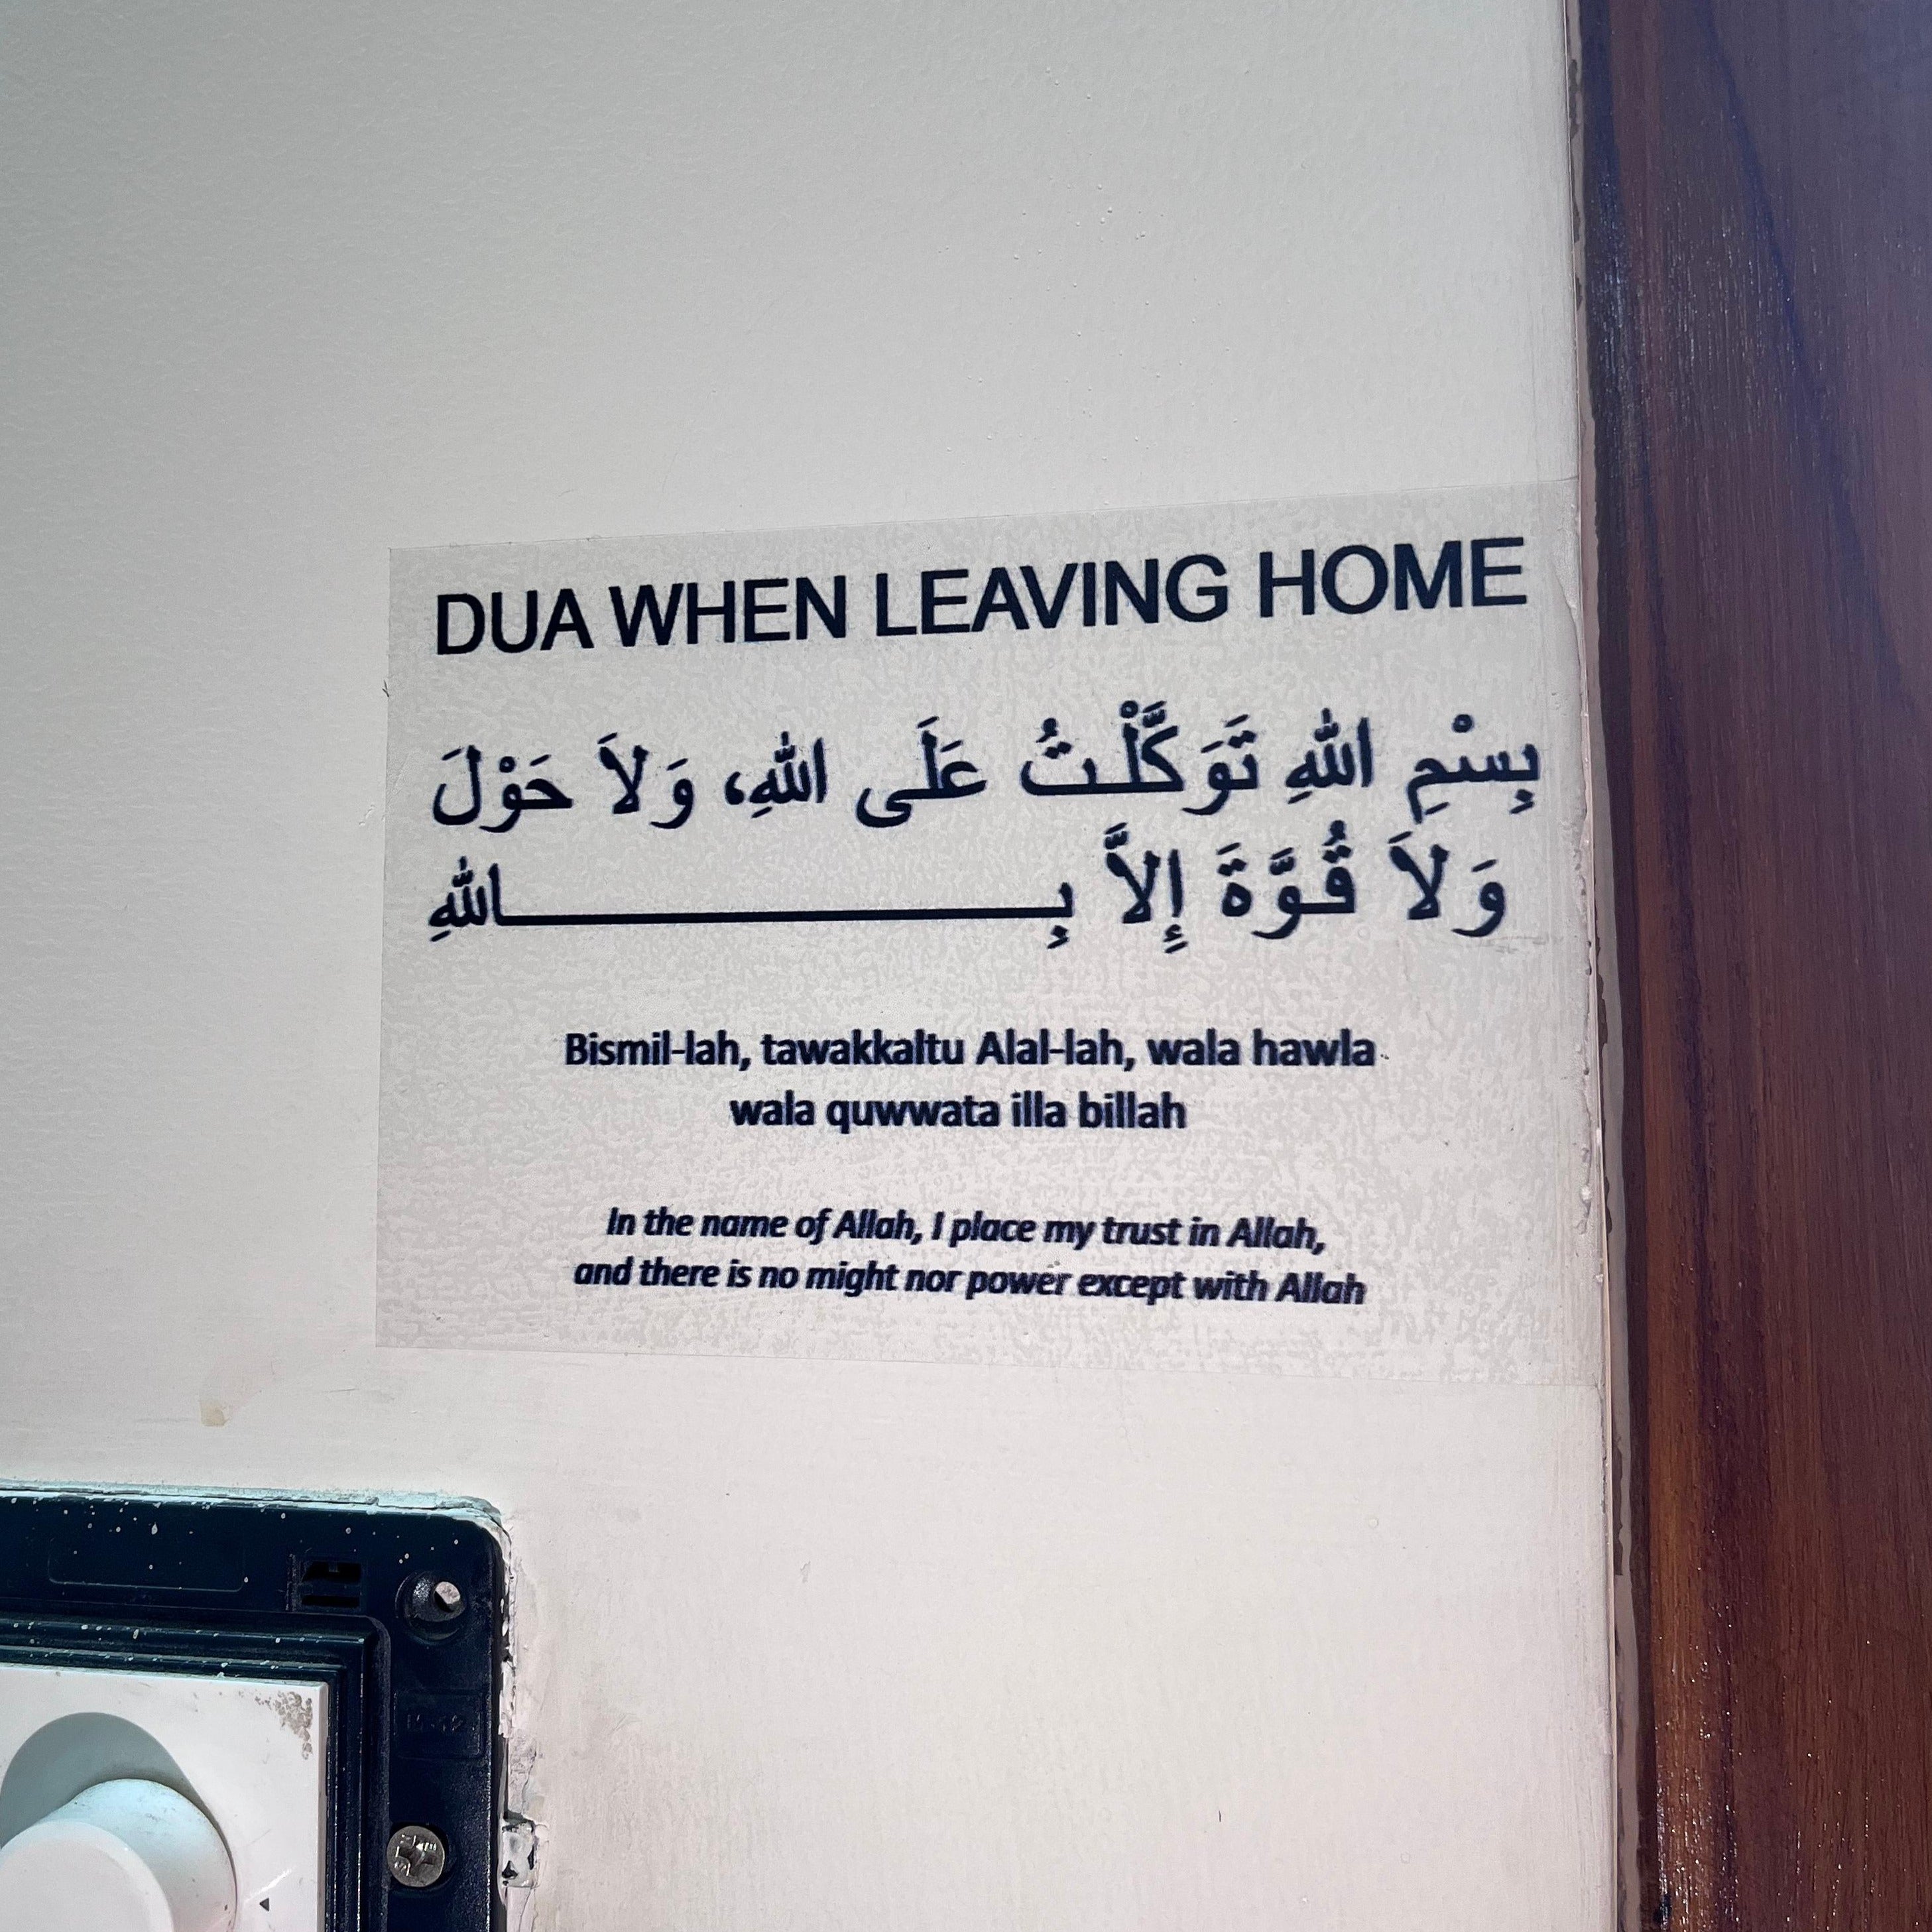 DUA WHEN LEAVING HOME
بِسْمِ اللهِ تَوَكَّلْتُ عَلَى اللهِ، وَلاَ حَوْلَ
وَلاَ قُوَّةَ إِلاَّ بِـــــــــــــــــاللهِ
Bismil-lah, tawakkaltu Alal-lah, wala hawla
wala quwwata illa billah
In the name of Allah, I place my trust in Allah,
and there is no might nor power except with Allah